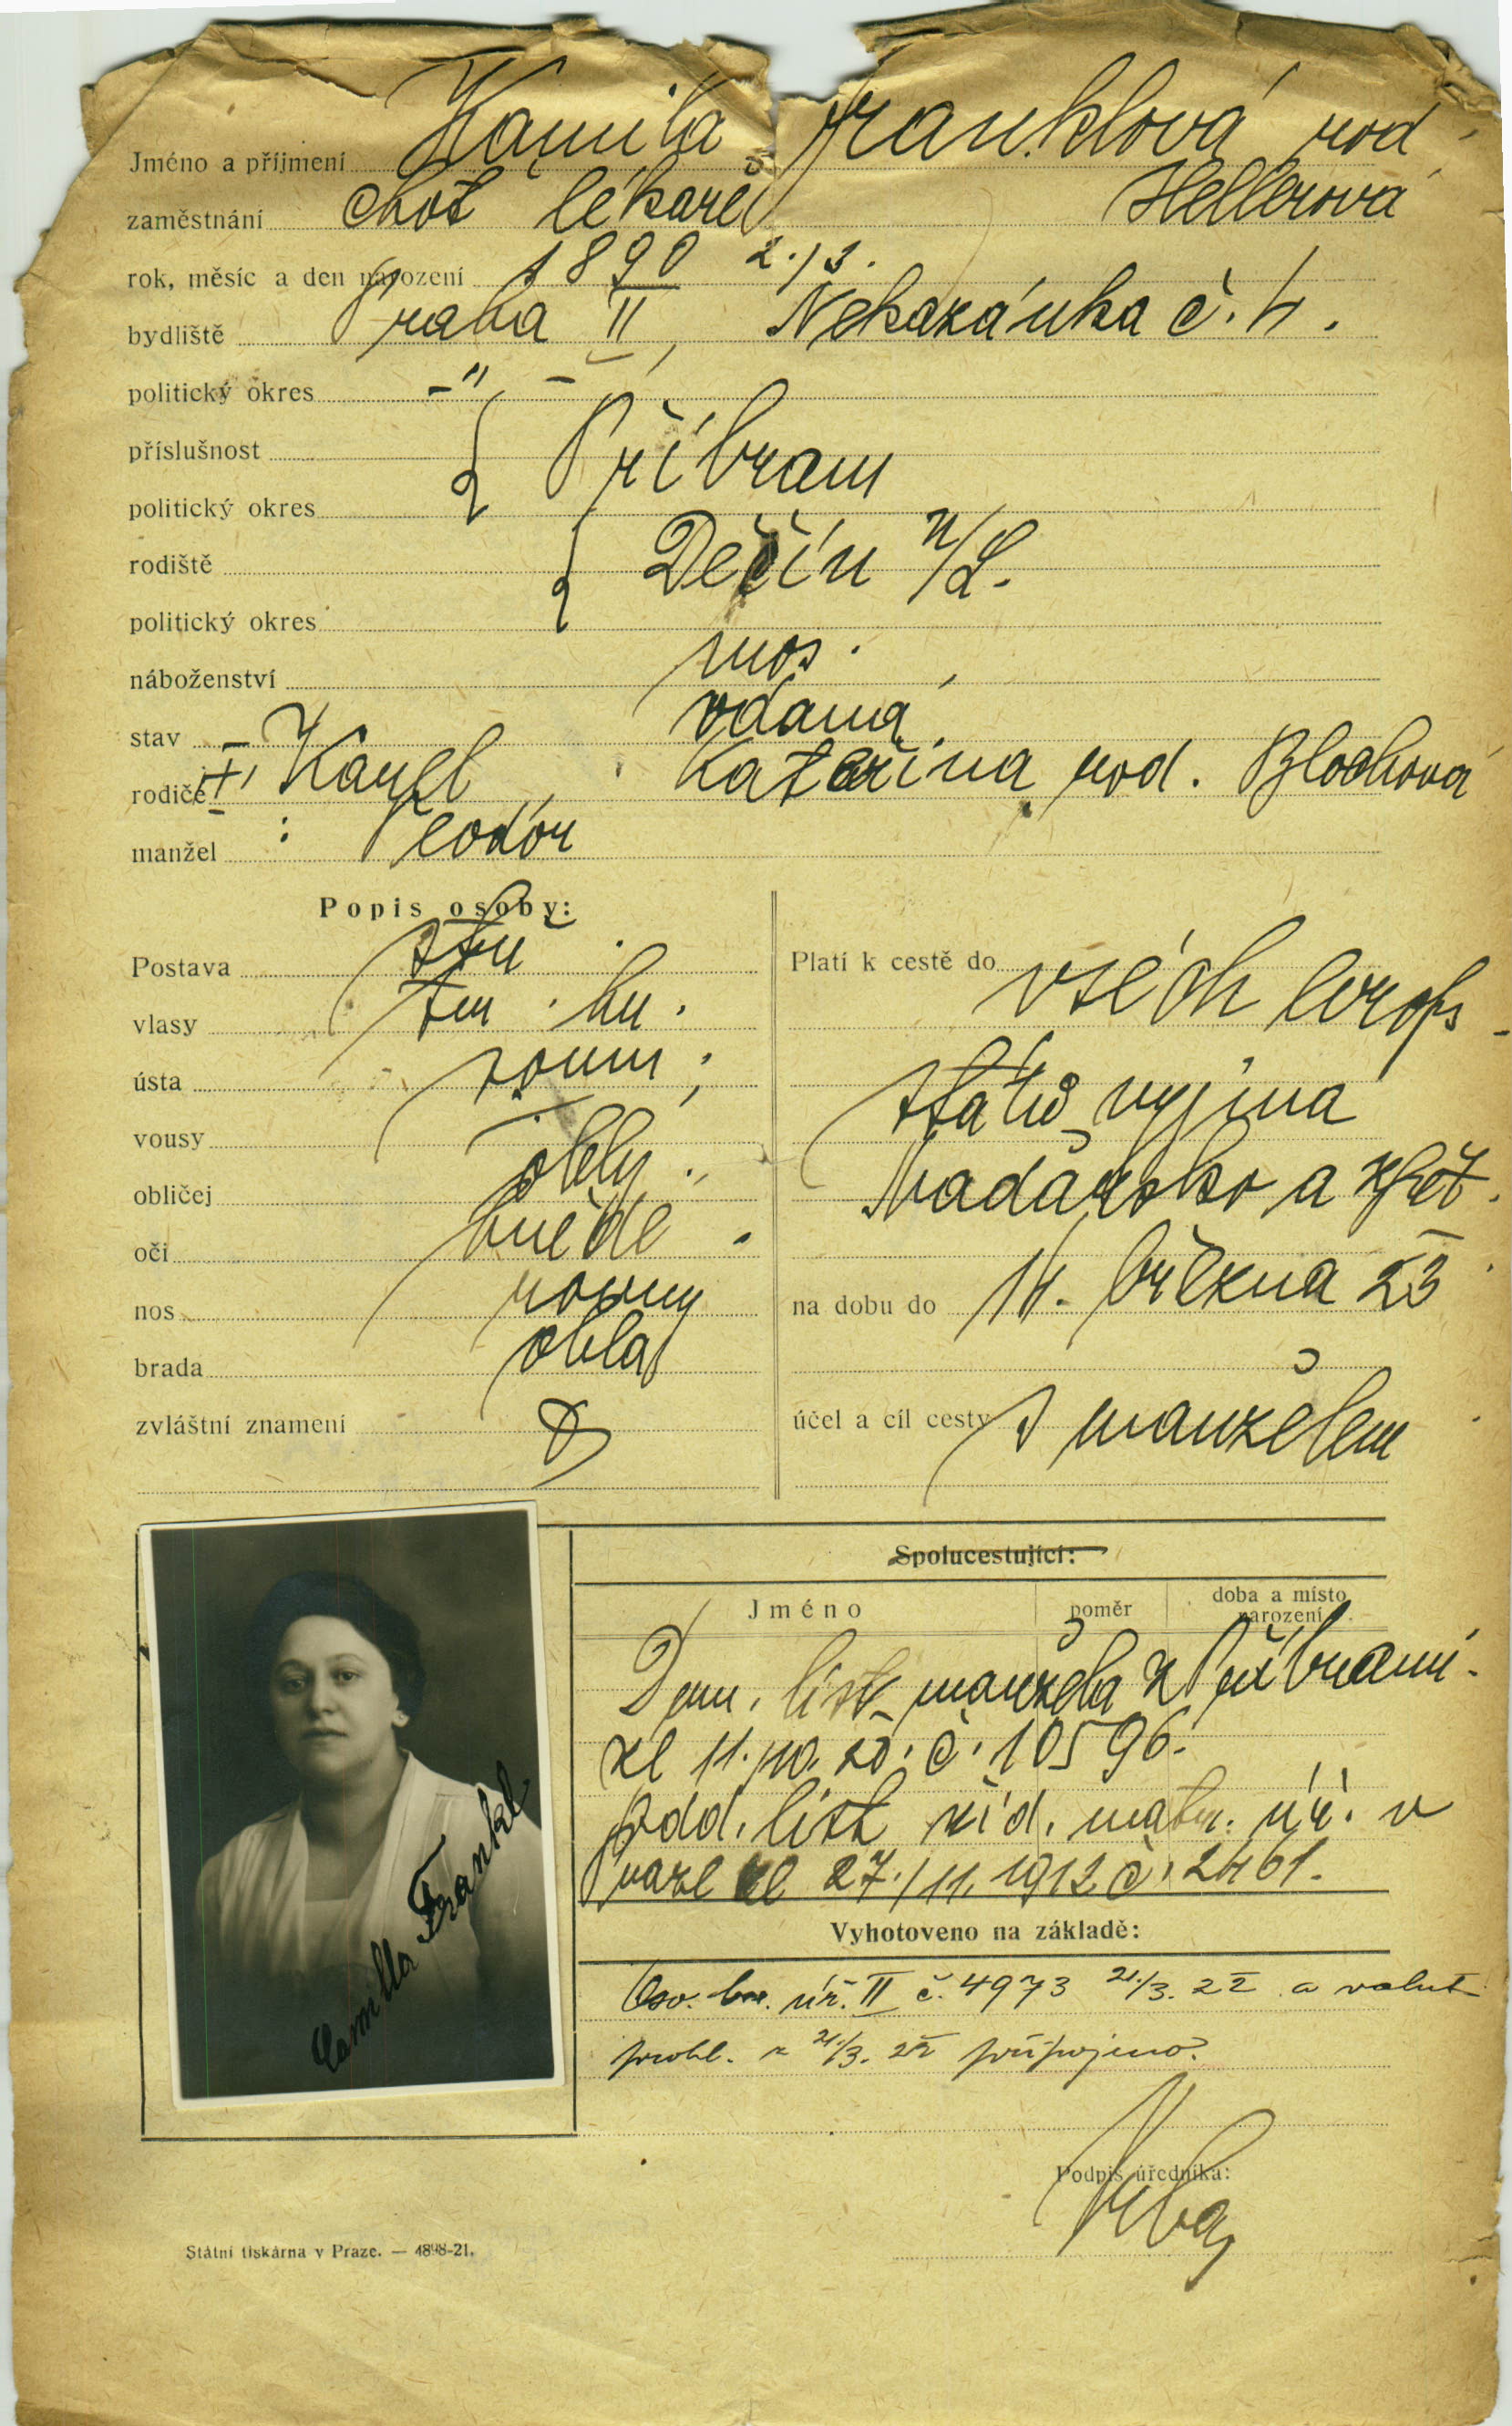 Jméno a příjmení Kamila Franklová rod.
zaměstnání choť lékaře Hellerová
rok, měsíc a den narození 1890 2./3.
bydliště Praha II, Nekázánka č. 4.
politický okres -"-
příslušnost Příbram
politický okres
rodiště Děčín n/L.
politický okres
náboženství mos.
stav vdaná
rodiče Karel, Kateřina rod. Blochová
manžel : Teodor
Popis osoby:
Postava stř.
vlasy tm. hn.
ústa soum.
vousy
obličej oblý
oči hnědé
nos rovný
brada oblá
zvláštní znamení
Platí k cestě do všech evrops.
států vyjma
Maďarsko a zpět.
na dobu do 14. března 23
účel a cíl cesty s manželem
Spolucestující:
Jméno poměr doba a místo narození
Dom. list manžela z Příbrami
ze 11./10. 20. č. 10596.
Odd. list žid. matr. úř. v
Praze ze 27./11. 1912 č. 2461.
Vyhotoveno na základě:
Osv. úř. II č. 4973 21./3. 22 a valut
prohl. z 21./3. 22 připojeno.
Podpis úředníka:
Camilla Frankl
Státní tiskárna v Praze. — 4898-21.